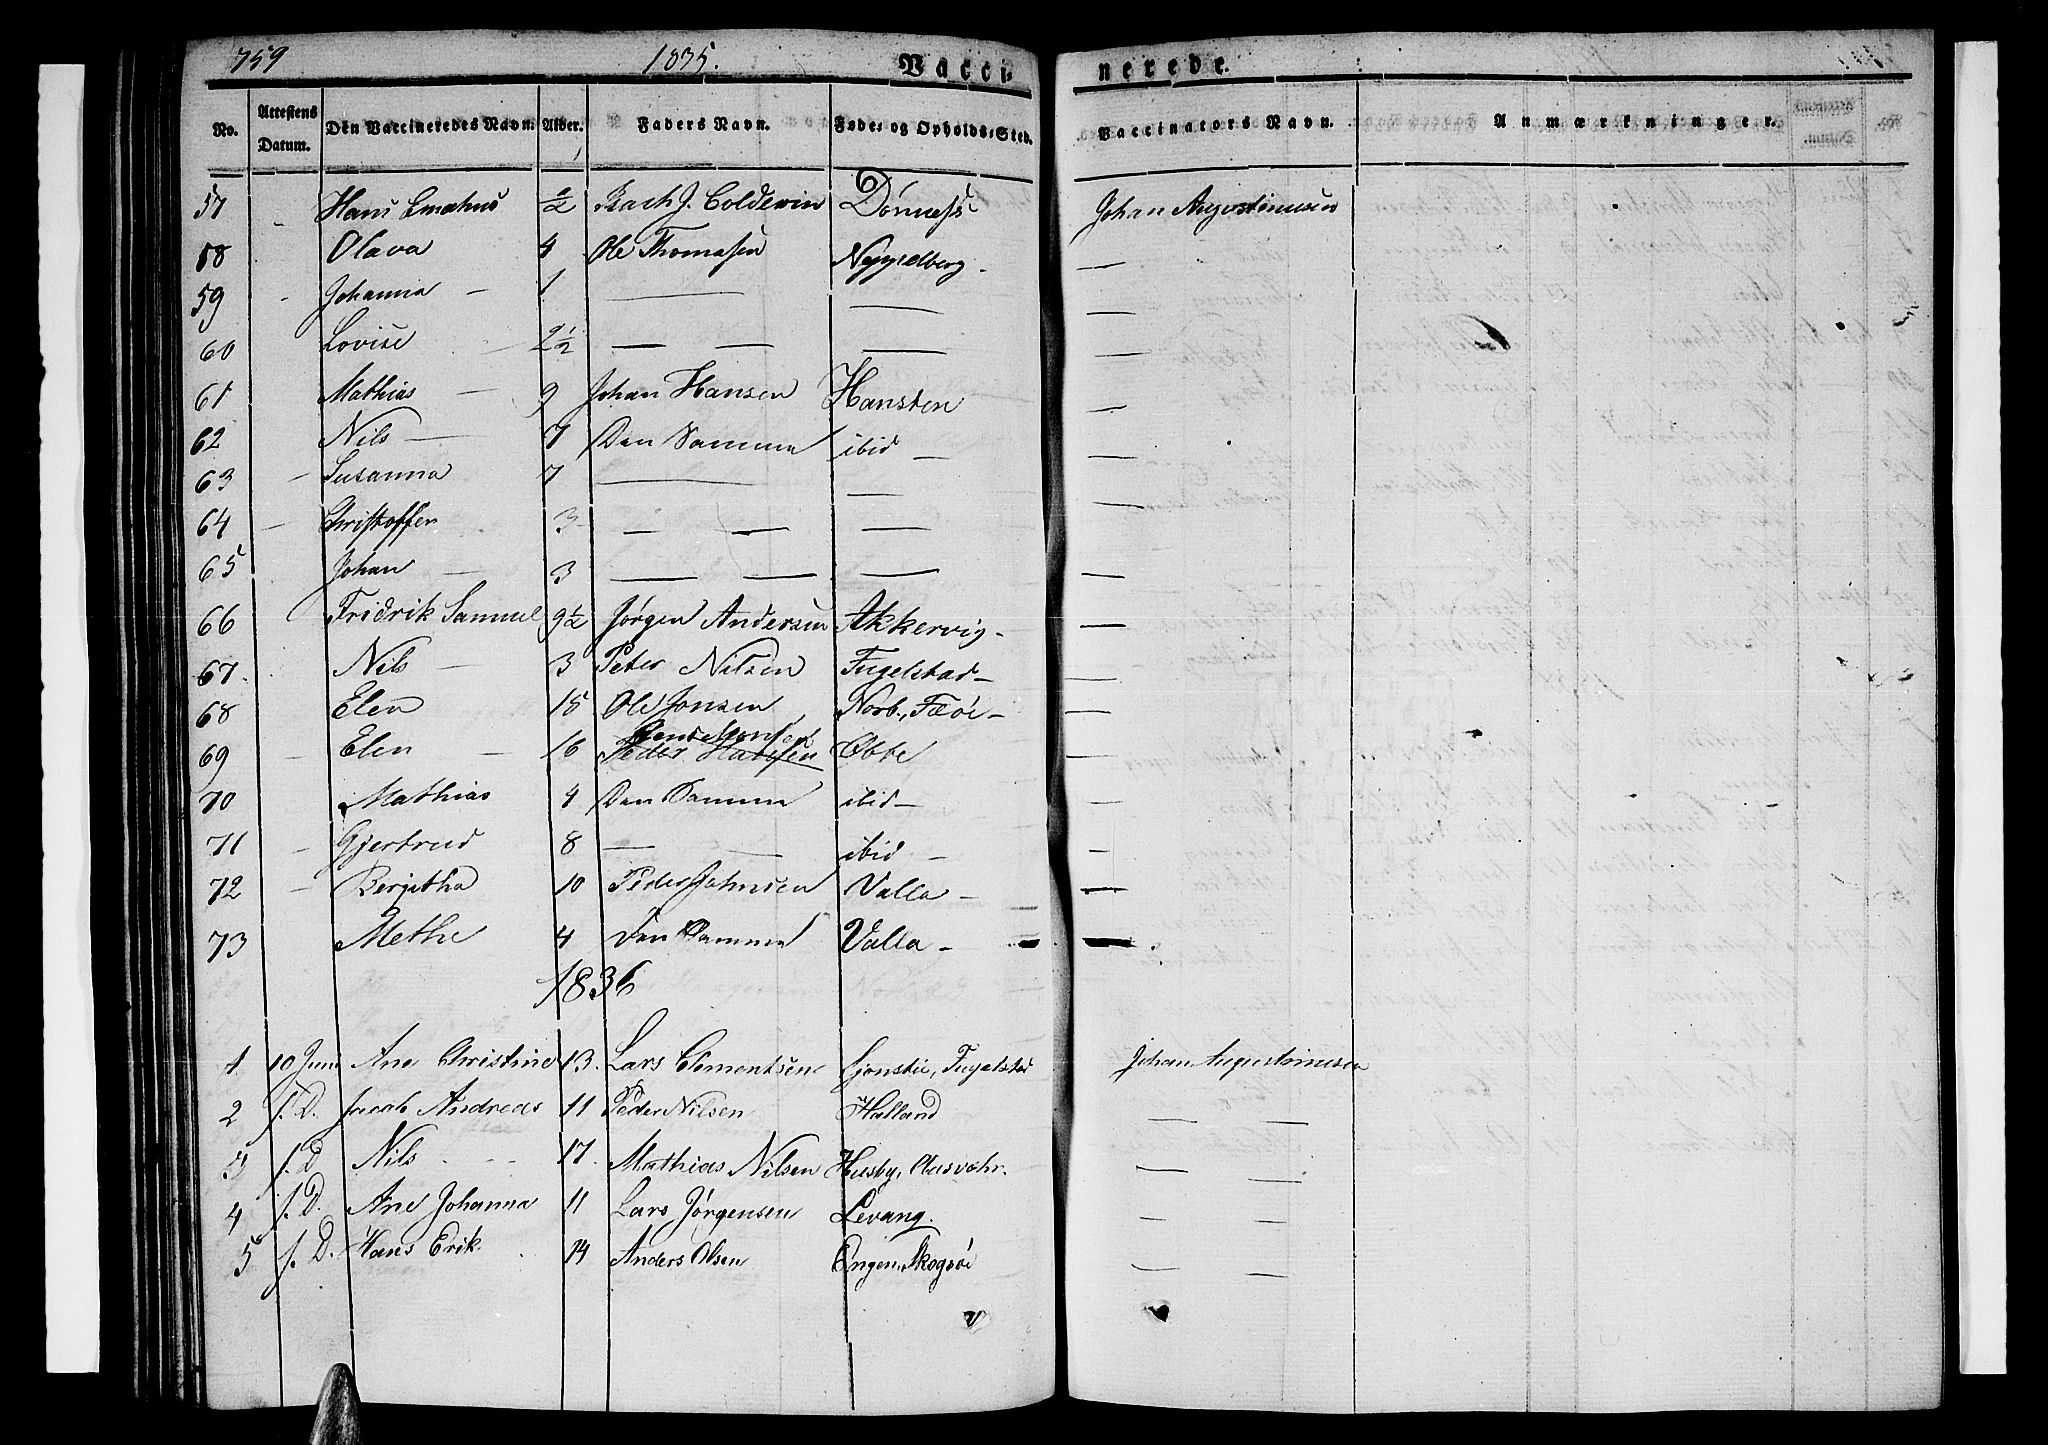 759 1835. Vacci- nerede.
No. Attestens Datum. Den Vaccineredes Navn. Alder. Faders Navn. Føde- og Opholds-Sted. Vaccinators Navn. Anmærkninger.
57 - Hans 1/2 Isach J. Coldevin Dönnes Johan Augustinusen
58 Olava 4 Ole Thomasen Nyppelberg - —
59 - Johanna — 1 — — —
60 Lovise 2 1/2 — — — —
61 Mathias — 9 Johan Hansen Hansten —
62 Nils — 7 Den Samme ibid — —
63 - Susanna 7 — — —
64 - Christoffer 3 — — — —
65 Johan — 3 — — — —
66 Fridrik Samuel 9 1/2 Jørgen Andersen Akkervig - —
67. Nils — 3 Peter Nilsen Fugelstad — —
68 Elen 15 Ole Jonsen Norb., Fæöe — —
69 - Elen — 16 Peder Hansen Øbte —
70 Mathias 4 Den Samme ibid — —
71 - Gjertrud 8 — — ibid — —
72 - Bergitha 10 Peder Johnsen Valla — —
73 Methe 4 Den Samme Valla — —
1836
1 10 Juni Ane Christine 13. Lars Clementsen Fugelstad Johan Augustinusen
2 f. D. Jacob Andreas 11 Peder Nilsen Halland — —
3 f. D Nils 17. Mathias Nilsen Husby, Aasvahr. — —
4 f. D. Ane Johanna 11 Lars Jørgensen Levang. — —
5 f. D. Hans Erik. 14 Anders Olsen Engen, Skogsöe — —